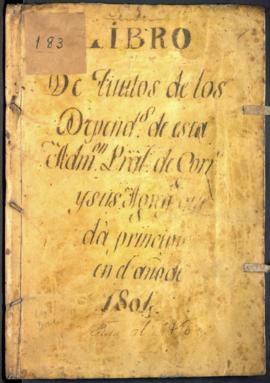 183
LIBRO
De Titulos de los
Depend.s de esta
Adm.on Pral. de Corr.
y sus Agreg.s que
da principio
en el año de
1801